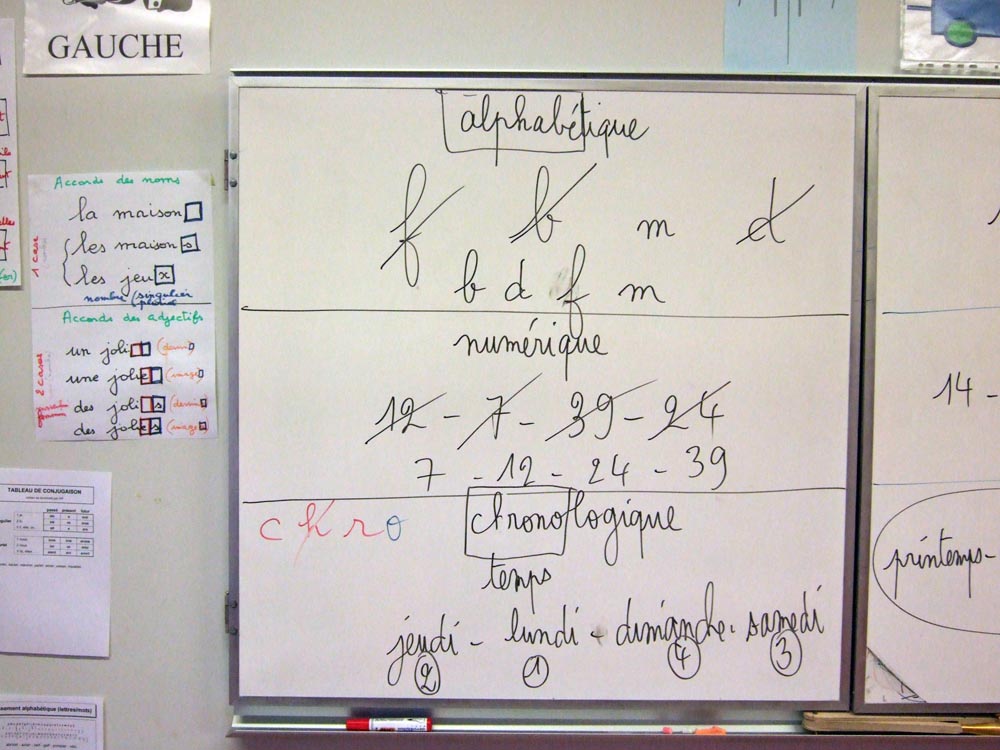 GAUCHE
Accords des noms
la maison
les maison s
les jeu x
1 case
nombre (singulier
pluriel
Accords des adjectifs
un joli
une jolie
des joli s
des jolies
2 cases
TABLEAU DE CONJUGAISON
passé présent futur
alphabétique
f b m d
b d f m
numérique
12 - 7 - 39 - 24
7 - 12 - 24 - 39
chronologique
c h r o
temps
jeudi - lundi - dimanche - samedi
2 1 4 3
14 -
printemps -
ssement alphabétique (lettres/mots)